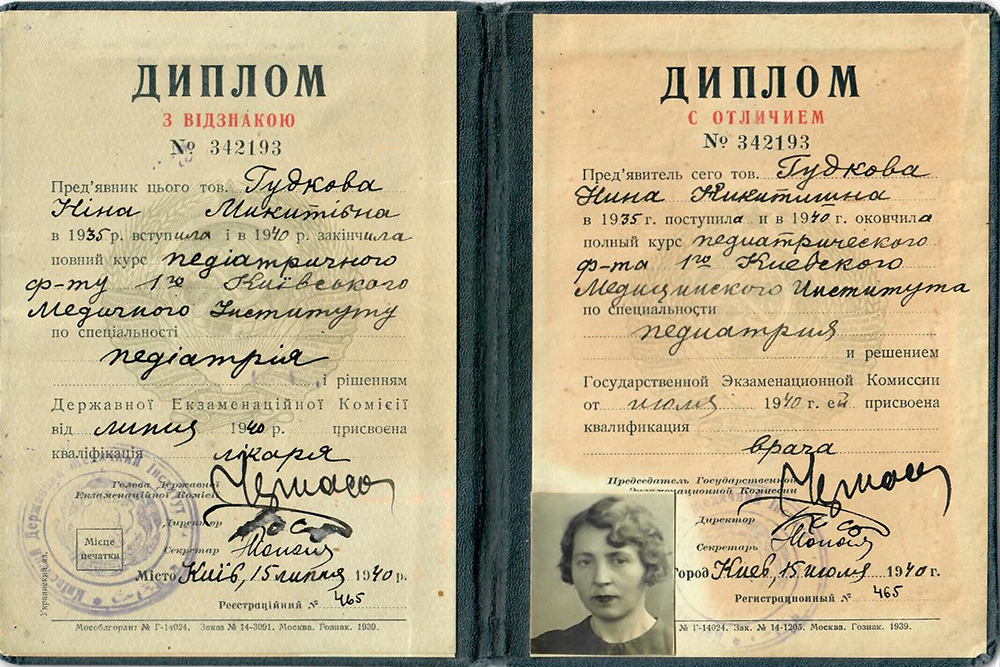 ДИПЛОМ
З ВІДЗНАКОЮ
№ 342193
Пред'явник цього тов. Гудкова
Ніна Микитівна
в 1935 р. вступила і в 1940 р. закінчила
повний курс педіатричного
ф-ту 1го Київського
Медичного Інституту
по спеціальності
педіатрія
і рішенням
Державної Екзаменаційної Комісії
від липня 1940 р. присвоєна
кваліфікація лікаря
Голова Державної
Екзаменаційної Комісії
Директор
Секретар
Місце
печатки
Місто Київ, 15 липня 1940 р.
Реєстраційний № 465
Украинский яз.
Мособлгорлит № Г-14024. Заказ № 14-3091. Москва. Гознак. 1939.
ДИПЛОМ
С ОТЛИЧИЕМ
№ 342193
Пред'явитель сего тов. Гудкова
Нина Никитична
в 1935 г. поступила и в 1940 г. окончила
полный курс педиатрического
ф-та 1го Киевского
Медицинского Института
по специальности
педиатрия
и решением
Государственной Экзаменационной Комиссии
от июля 1940 г. ей присвоена
квалификация
врача
Председатель Государственной
Экзаменационной Комиссии
Директор
Секретарь
Город Киев, 15 июля 1940 г.
Регистрационный № 465
№ Г-14024. Зак. № 14-1205. Москва. Гознак. 1939.